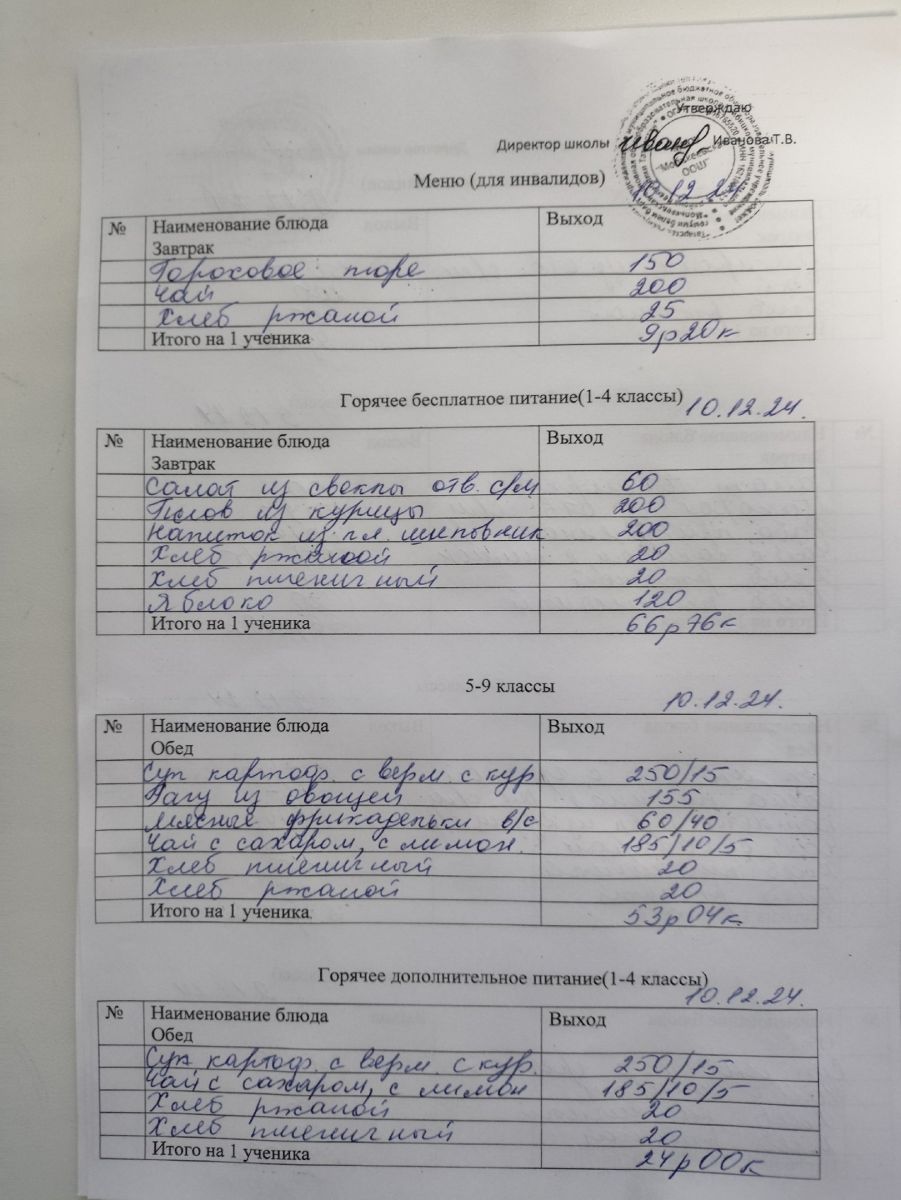 Утверждаю
Директор школы Иванова Т.В.
Меню (для инвалидов) 10.12.24
№ Наименование блюда Выход
Завтрак
Гороховое пюре 150
Чай 200
Хлеб ржаной 25
Итого на 1 ученика 9р20к
Горячее бесплатное питание(1-4 классы) 10.12.24.
№ Наименование блюда Выход
Завтрак
Салат из свеклы отв. с/м 60
Плов из курицы 200
Напиток из пл. шиповник 200
Хлеб ржаной 20
Хлеб пшеничный 20
Яблоко 120
Итого на 1 ученика 66р76к
5-9 классы 10.12.24.
№ Наименование блюда Выход
Обед
Суп картоф. с верм. с кур 250/15
Рагу из овощей 155
Мясные фрикадельки в/с 60/40
Чай с сахаром, с лимон. 185/10/5
Хлеб пшеничный 20
Хлеб ржаной 20
Итого на 1 ученика 53р04к
Горячее дополнительное питание(1-4 классы) 10.12.24.
№ Наименование блюда Выход
Обед
Суп картоф. с верм. с кур. 250/15
Чай с сахаром, с лимон 185/10/5
Хлеб ржаной 20
Хлеб пшеничный 20
Итого на 1 ученика 24р00к